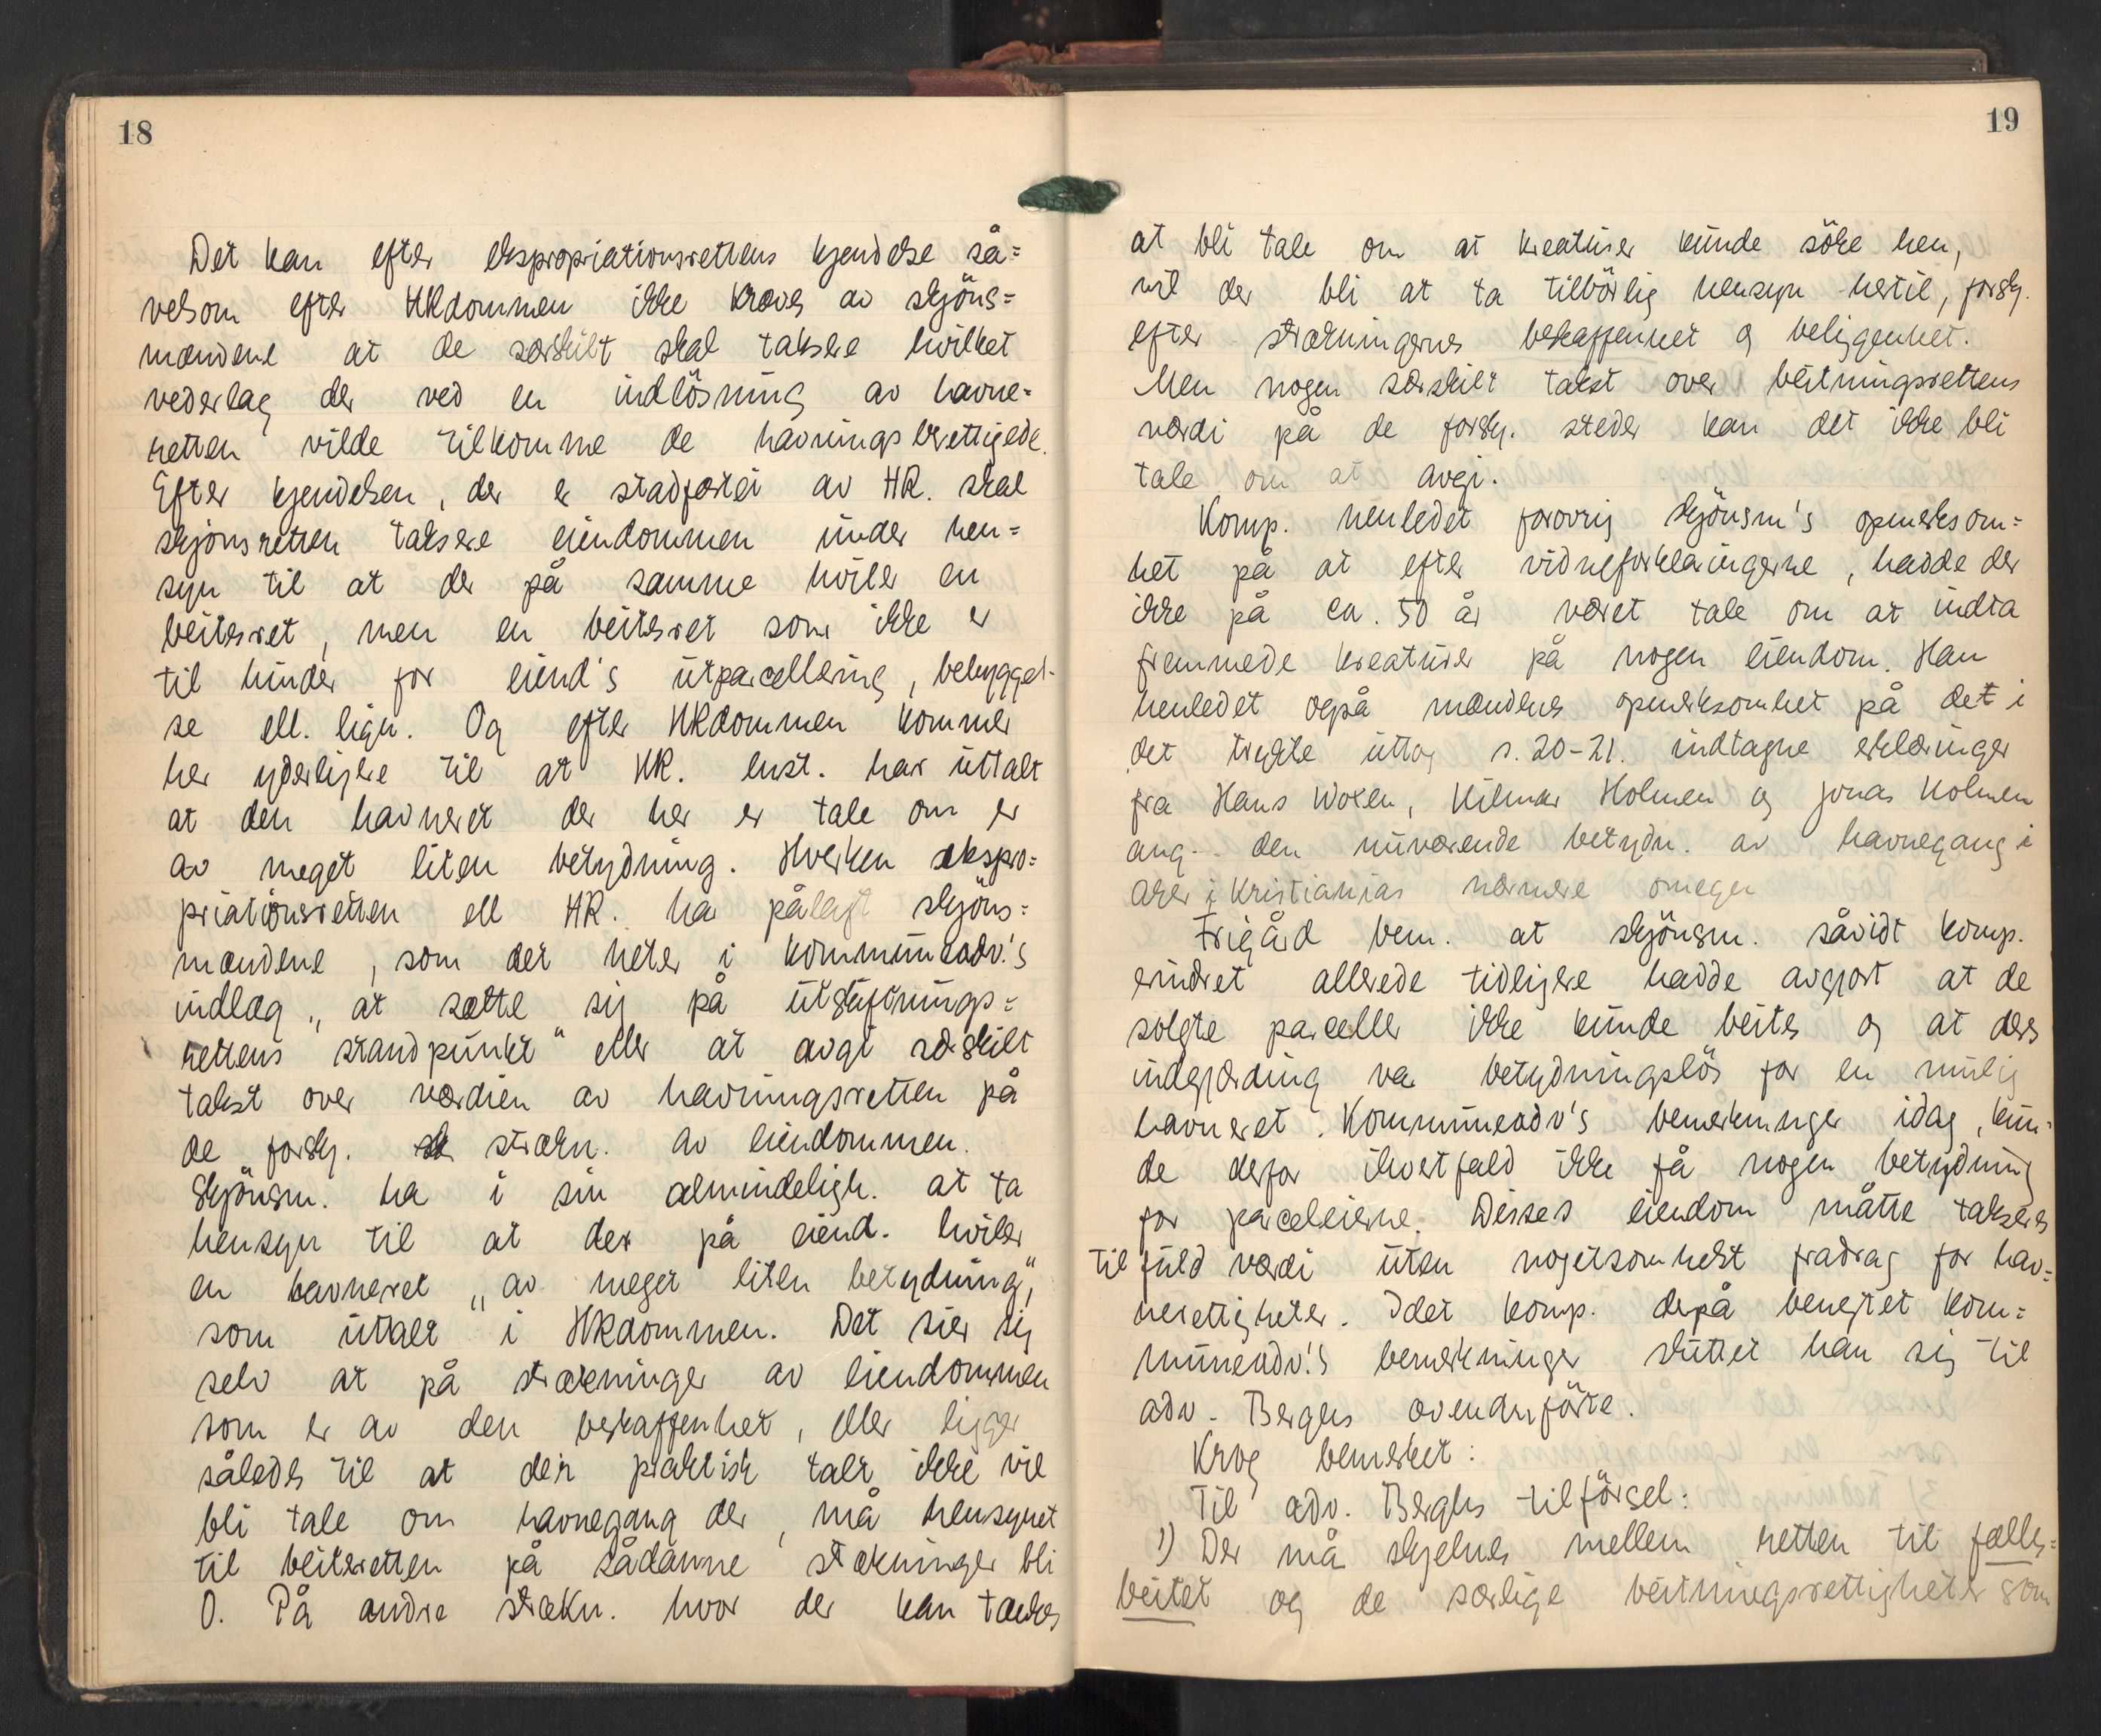 18
Det kan efter ekspropriationsrettens kjendelse så=
velsom efter HRdommen ikke kræves av skjöns=
mændene at de særskilt skal taksere hvilket
vederlag der ved en indlösning av havne=
retten vilde tilkomme de havningsberettigede.
Efter kjendelsen, der er stadfæstet av HR. skal
skjönsretten taksere eiendommen under hen=
syn til at der på samme hviler en
beitesret, men en beitesret som ikke er
til hinder for eiend's utparcellering, bebyggel-
se ell. lign. Og efter HRdommen kommer
her yderligere til at HR. enst. har uttalt
at den havneret der her er tale om er
av meget liten betydning. Hverken ekspro=
priationsretten ell HR. har pålagt skjöns=
mændene, som det heter i kommuneadv.'s
indlæg „at sætte sig på utskiftnings=
rettens standpunkt" eller at avgi særskilt
takst over værdien av havningsretten på
de forskj. strækn. av eiendommen.
Skjönsm. har i sin almindeligh. at ta
hensyn til at der på eiend. hviler
en havneret „av meget liten betydning",
som uttalt i HRdommen. Det sier sig
selv at på strækninger av eiendommen
som er av den beskaffenhet, eller ligger
således til at der praktisk talt ikke vil
bli tale om havnegang der, må hensynet
til beiteretten på sådanne strækninger bli
0. På andre strækn. hvor der kan tænkes
19
at bli tale om at kreaturer kunde söke hen,
vil der bli at ta tilbörlig hensyn hertil, forskj.
efter strækningernes beskaffenhet og beliggenhet.
Men nogen særskilt takst over beitningsrettens
værdi på de forskj. steder kan det ikke bli
tale om at avgi.
Komp. henledet forøvrig skjönsm's opmerksom=
het på at efter vidneforklaringerne, hadde der
ikke på ca. 50 år været tale om at indta
fremmede kreaturer på nogen eiendom. Han
henledet også mændenes opmerksomhet på det i
det trykte uttog s. 20-21. indtagne erklæringer
fra Hans Woxen, Hilmar Holmen og Jonas Holmen
ang. den nuværende betydn. av havnegang i
Aker i Kristianias nærmere omegn
Frigård bem. at skjönsm. såvidt komp.
erindret allerede tidligere hadde avgjort at de
solgte parceller ikke kunde beites og at deres
indgjærding var betydningslös for en mulig
havneret. Kommuneadv's bemerkninger idag, kun-
de derfor ihvertfald ikke få nogen betydning
for parceleierne. Disses eiendom måtte takseres
til fuld værdi uten nogetsomhelst fradrag for hav=
nerettigheter. Idet komp. derpå benegtet kom=
muneadv.'s bemerkninger sluttet han sig til
adv. Berghs ovenanförte.
Krog bemerket:
Til adv. Berghs tilförsel:
1) Der må skjelnes mellem retten til fælles=
beitet og de særlige beitningsrettigheter som